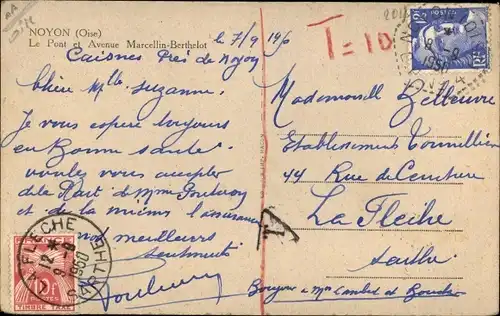 NOYON (Oise)
Le Pont et Avenue Marcellin-Berthelot
le 7/9 19
Caisnes Près de Noyon
Chère Mlle Suzanne.
Je vous espère toujours
en Bonne santé
voulez vous accepter
de la Part de Mme
et de la mienne l'assurance
nos meilleurs
Sentiments
T = 10
Mademoiselle
Etablissements
44 Rue de
La Flèche
Sarthe
Bonjour a Mme et
12F
POSTES
1950
LA FLECHE SARTHE
12 *
9 -9
1950
10F
POSTES
TIMBRE TAXE